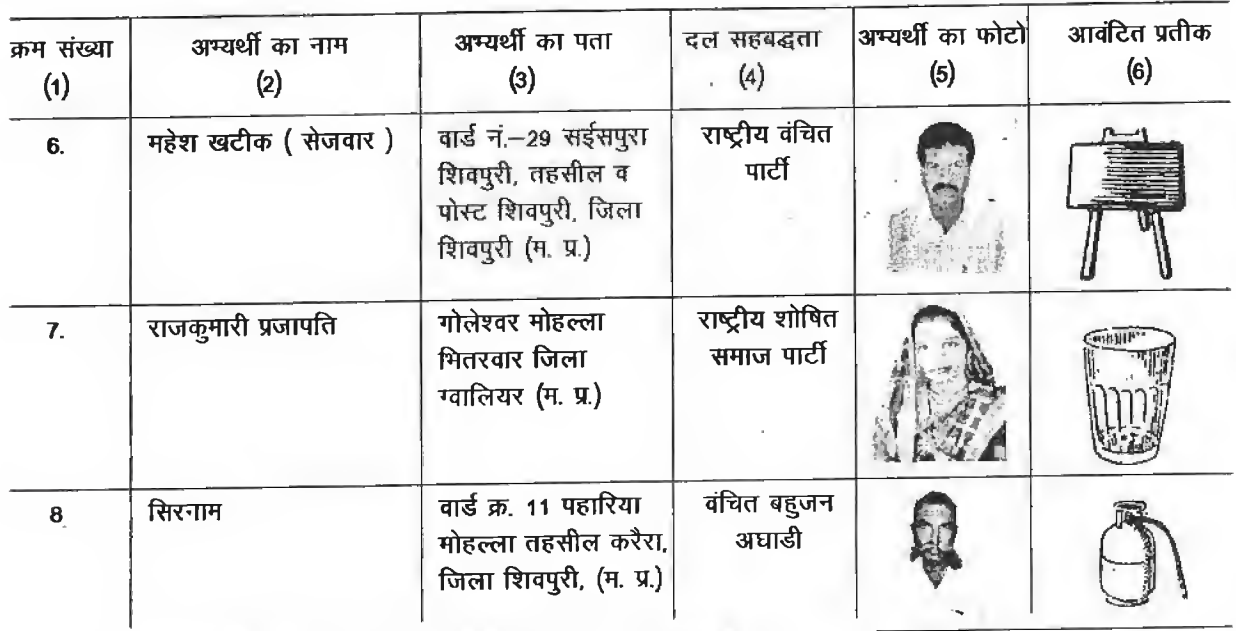 क्रम संख्या
(1)
अभ्यर्थी का नाम
(2)
अभ्यर्थी का पता
(3)
दल सहबद्धता
(4)
अभ्यर्थी का फोटो
(5)
आवंटित प्रतीक
(6)
6.
महेश खटीक ( सेजवार )
वार्ड नं.–29 सईसपुरा
शिवपुरी, तहसील व
पोस्ट शिवपुरी, जिला
शिवपुरी (म. प्र.)
राष्ट्रीय वंचित
पार्टी
7.
राजकुमारी प्रजापति
गोलेश्वर मोहल्ला
भितरवार जिला
ग्वालियर (म. प्र.)
राष्ट्रीय शोषित
समाज पार्टी
8
सिरनाम
वार्ड क्र. 11 पहारिया
मोहल्ला तहसील करैरा,
जिला शिवपुरी, (म. प्र.)
वंचित बहुजन
अघाडी